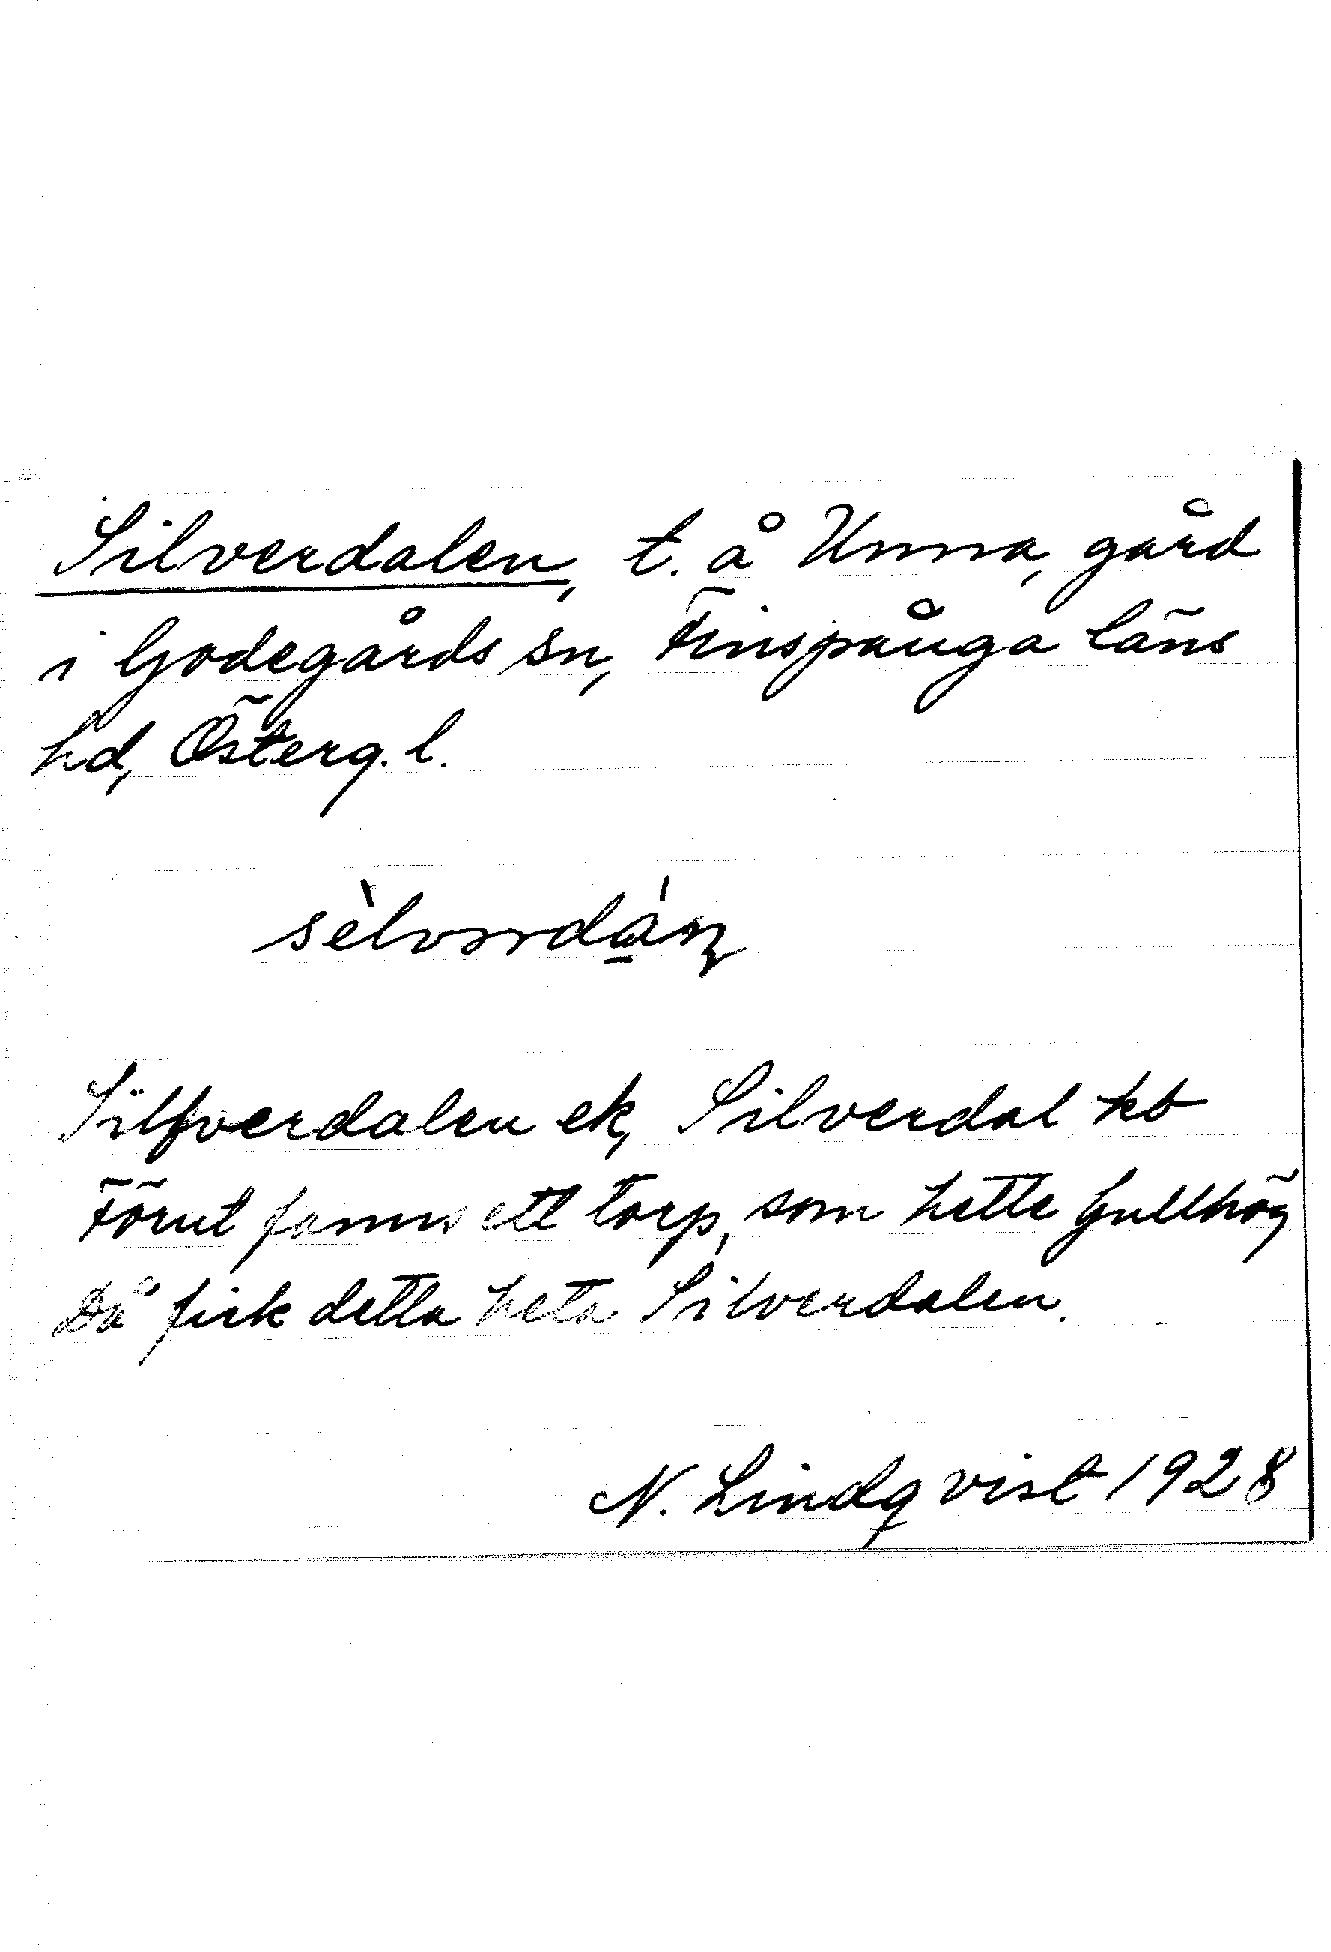 Silverdalen, t. å Unna, gård
i Godegårds sn, Finspånga läns
hd, Österg. l.
Silfverdalen ek, Silverdal kb
Förut fanns ett torp, som hette Gullhög
Då fick detta heta Silverdalen.
N. Lindqvist 1928